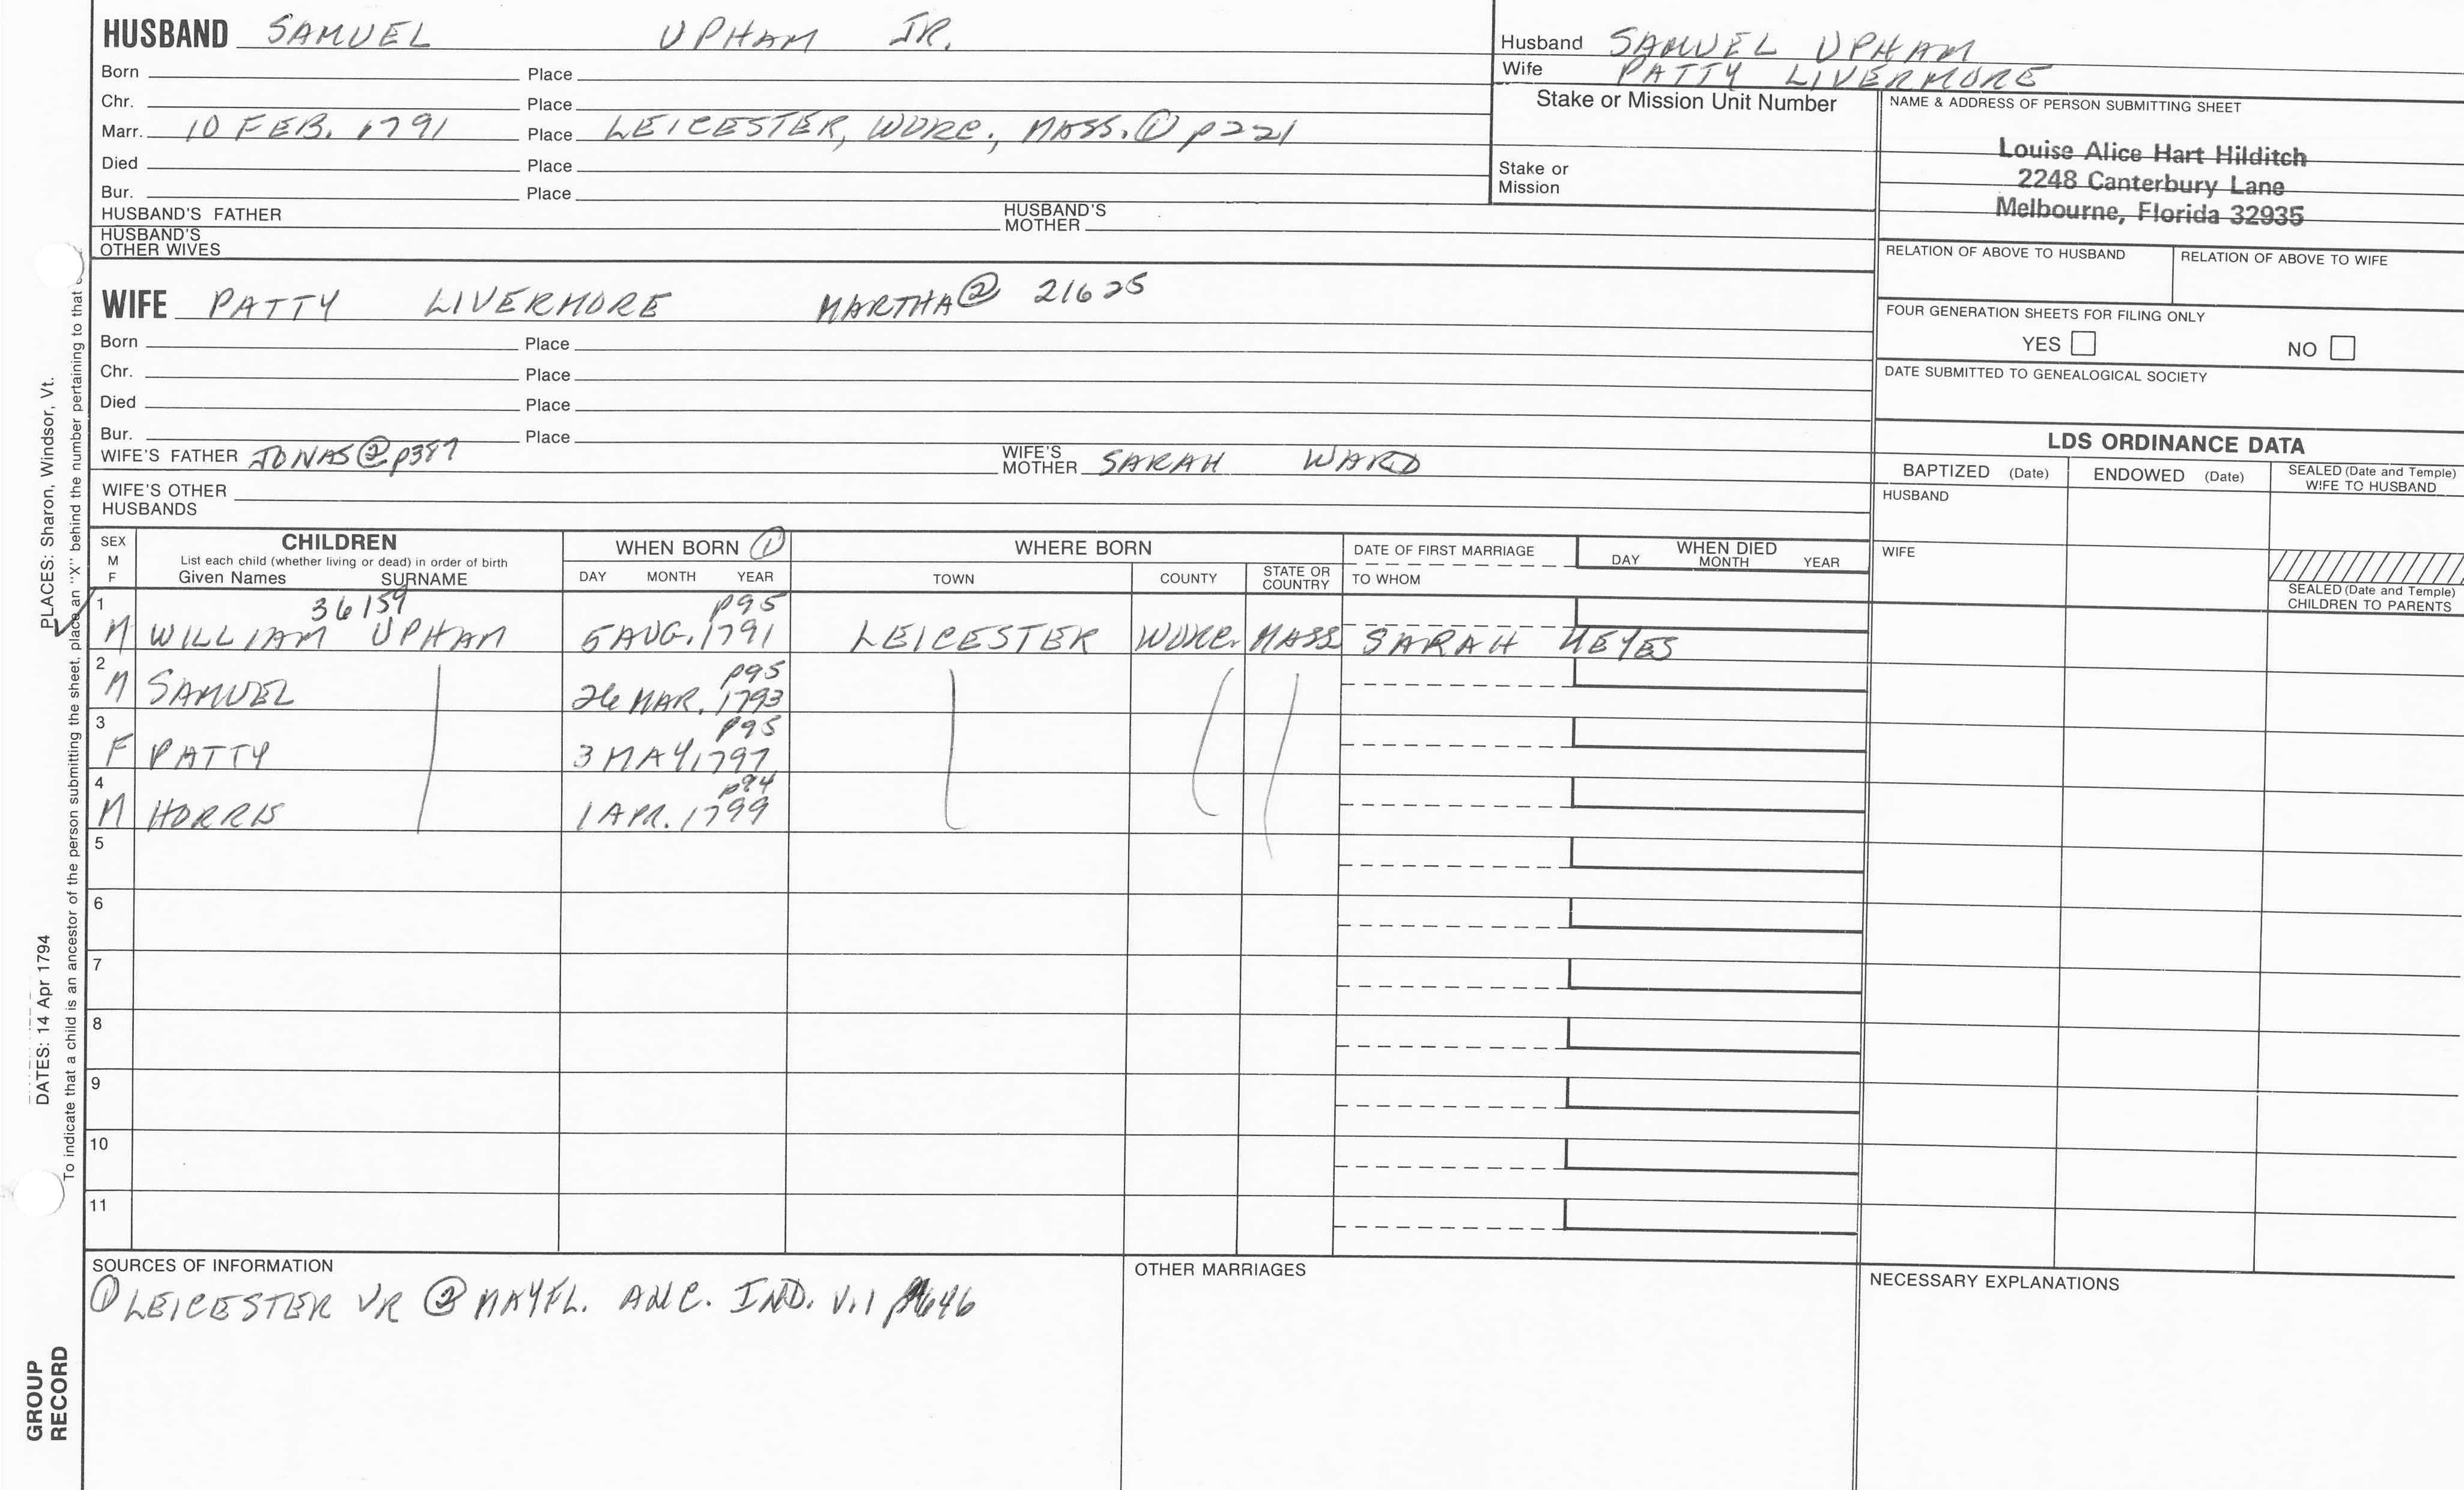 HUSBAND SAMUEL UPHAM JR.
Born Place
Chr. Place
Marr. 10 FEB. 1791 Place LEICESTER, WORC., MASS. ① p221
Died Place
Bur. Place
HUSBAND'S FATHER HUSBAND'S MOTHER
HUSBAND'S OTHER WIVES
Husband SAMUEL UPHAM
Wife PATTY LIVERMORE
Stake or Mission Unit Number
Stake or Mission
NAME & ADDRESS OF PERSON SUBMITTING SHEET
Louise Alice Hart Hilditch
2248 Canterbury Lane
Melbourne, Florida 32935
RELATION OF ABOVE TO HUSBAND RELATION OF ABOVE TO WIFE
FOUR GENERATION SHEETS FOR FILING ONLY
YES NO
DATE SUBMITTED TO GENEALOGICAL SOCIETY
WIFE PATTY LIVERMORE MARTHA② 21625
Born Place
Chr. Place
Died Place
Bur. Place
WIFE'S FATHER JONAS② p387 WIFE'S MOTHER SARAH WARD
WIFE'S OTHER HUSBANDS
LDS ORDINANCE DATA
BAPTIZED (Date) ENDOWED (Date) SEALED (Date and Temple) WIFE TO HUSBAND
HUSBAND
WIFE
SEALED (Date and Temple) CHILDREN TO PARENTS
SEX M F
CHILDREN
List each child (whether living or dead) in order of birth
Given Names SURNAME
WHEN BORN ①
DAY MONTH YEAR
WHERE BORN
TOWN COUNTY STATE OR COUNTRY
DATE OF FIRST MARRIAGE
TO WHOM
WHEN DIED
DAY MONTH YEAR
1 36159 p95
M WILLIAM UPHAM 5 AUG. 1791 LEICESTER WORC. MASS SARAH KEYES
2 p95
M SAMUEL 26 MAR. 1793
3 p95
F PATTY 3 MAY, 1797
4 p94
M HORRIS 1 APR. 1799
5
6
7
8
9
10
11
SOURCES OF INFORMATION
① LEICESTER VR ② MAYFL. ANC. IND. V.1 p646
OTHER MARRIAGES
NECESSARY EXPLANATIONS
PLACES: Sharon, Windsor, Vt.
DATES: 14 Apr 1794
To indicate that a child is an ancestor of the person submitting the sheet, place an "X" behind the number pertaining to that
GROUP
RECORD